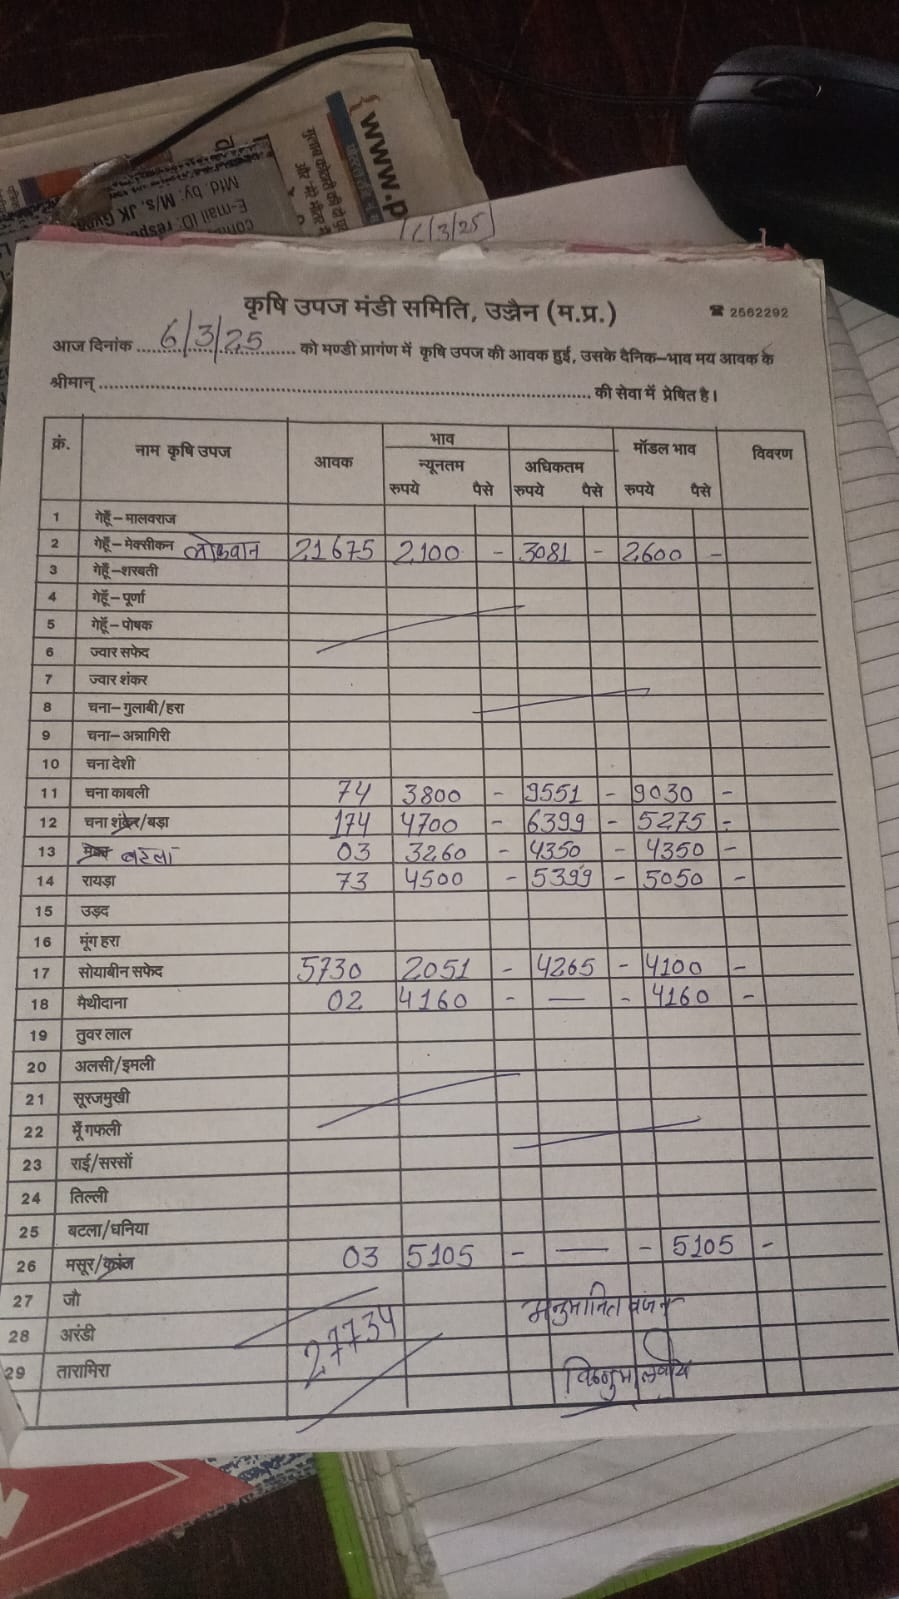 { www.p
Mfd. by. M/s. JK
E-mail ID.
6/3/25
कृषि उपज मंडी समिति, उज्जैन (म.प्र.) ☎ 2562292
आज दिनांक 6/3/25 को मण्डी प्रागंण में कृषि उपज की आवक हुई, उसके दैनिक–भाव मय आवक के
श्रीमान् ........ की सेवा में प्रेषित है।
क्रं. नाम कृषि उपज आवक भाव मॉडल भाव विवरण
न्यूनतम अधिकतम
रुपये पैसे रुपये पैसे रुपये पैसे
1 गेहूँ–मालवराज
2 गेहूँ–मेक्सीकन लोकवान 21675 2100 - 3081 - 2600 -
3 गेहूँ–शरबती
4 गेहूँ–पूर्णा
5 गेहूँ–पोषक
6 ज्वार सफेद
7 ज्वार शंकर
8 चना–गुलाबी/हरा
9 चना–अन्नागिरी
10 चना देशी
11 चना काबली 74 3800 - 9551 - 9030 -
12 चना शंकर/बड़ा 174 4700 - 6399 - 5275 -
13 बटला 03 3260 - 4350 - 4350 -
14 रायड़ा 73 4500 - 5399 - 5050 -
15 उड़द
16 मूंग हरा
17 सोयाबीन सफेद 5730 2051 - 4265 - 4100 -
18 मैथीदाना 02 4160 - — - 4160 -
19 तुवर लाल
20 अलसी/इमली
21 सूरजमुखी
22 मूँगफली
23 राई/सरसों
24 तिल्ली
25 बटला/धनिया
26 मसूर/ 03 5105 - — - 5105 -
27 जौ
28 अरंडी
29 तारामिरा
27734
अनुमानित वजन